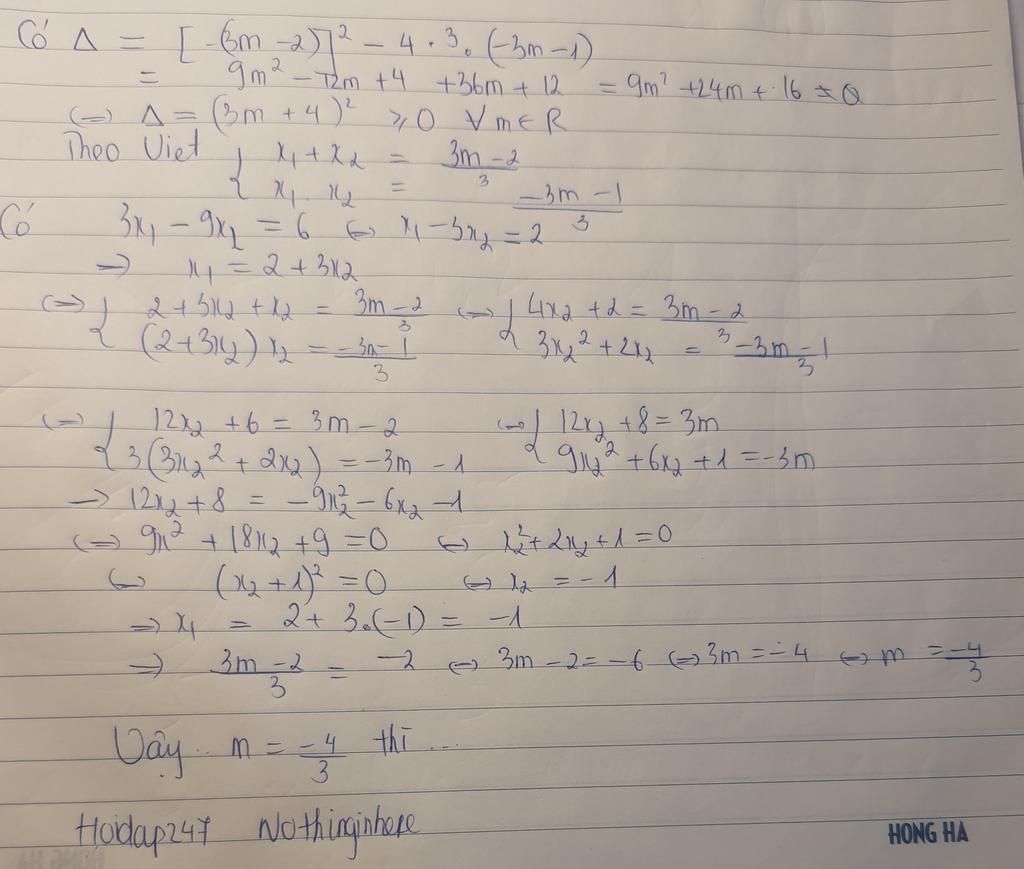 Có Δ = [-(3m-2)]² - 4 . 3. (-3m-1)
= 9m² - 12m + 4 + 36m + 12 = 9m² + 24m + 16 = 0
(=) Δ = (3m + 4)² ⩾ 0 ∀m∈R
Theo Viet { x₁ + x₂ = (3m-2)/3
x₁ . x₂ = (-3m-1)/3
Có 3x₁ - 9x₂ = 6 ⇔ x₁ - 3x₂ = 2
=> x₁ = 2 + 3x₂
(=) { 2 + 3x₂ + x₂ = (3m-2)/3 ⇔ { 4x₂ + 2 = (3m-2)/3
(2+3x₂) x₂ = (-3m-1)/3 3x₂² + 2x₂ = (-3m-1)/3
(=) { 12x₂ + 6 = 3m - 2 ⇔ { 12x₂ + 8 = 3m
3(3x₂² + 2x₂) = -3m - 1 9x₂² + 6x₂ + 1 = -3m
-> 12x₂ + 8 = -9x₂² - 6x₂ - 1
(=) 9x² + 18x₂ + 9 = 0 ⇔ x₂² + 2x₂ + 1 = 0
⇔ (x₂ + 1)² = 0 ⇔ x₂ = -1
=> x₁ = 2 + 3.(-1) = -1
=> (3m-2)/3 = -2 ⇔ 3m - 2 = -6 ⇔ 3m = -4 ⇔ m = -4/3
Vậy .. m = -4/3 thì ...
Hoidap247 Nothinginhere
HONG HA